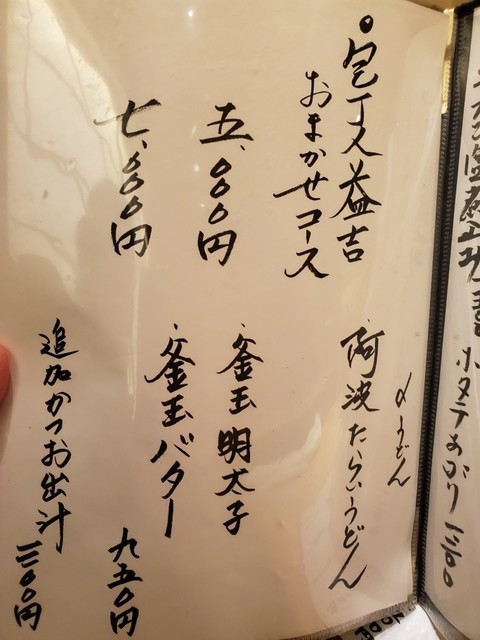 ホタテあぶり 一二〇〇
包丁人益吉
おまかせコース
五、〇〇〇円
七、〇〇〇円
〆うどん
阿波たらいうどん
釜玉明太子
釜玉バター
九五〇円
追加かつお出汁
三〇〇円